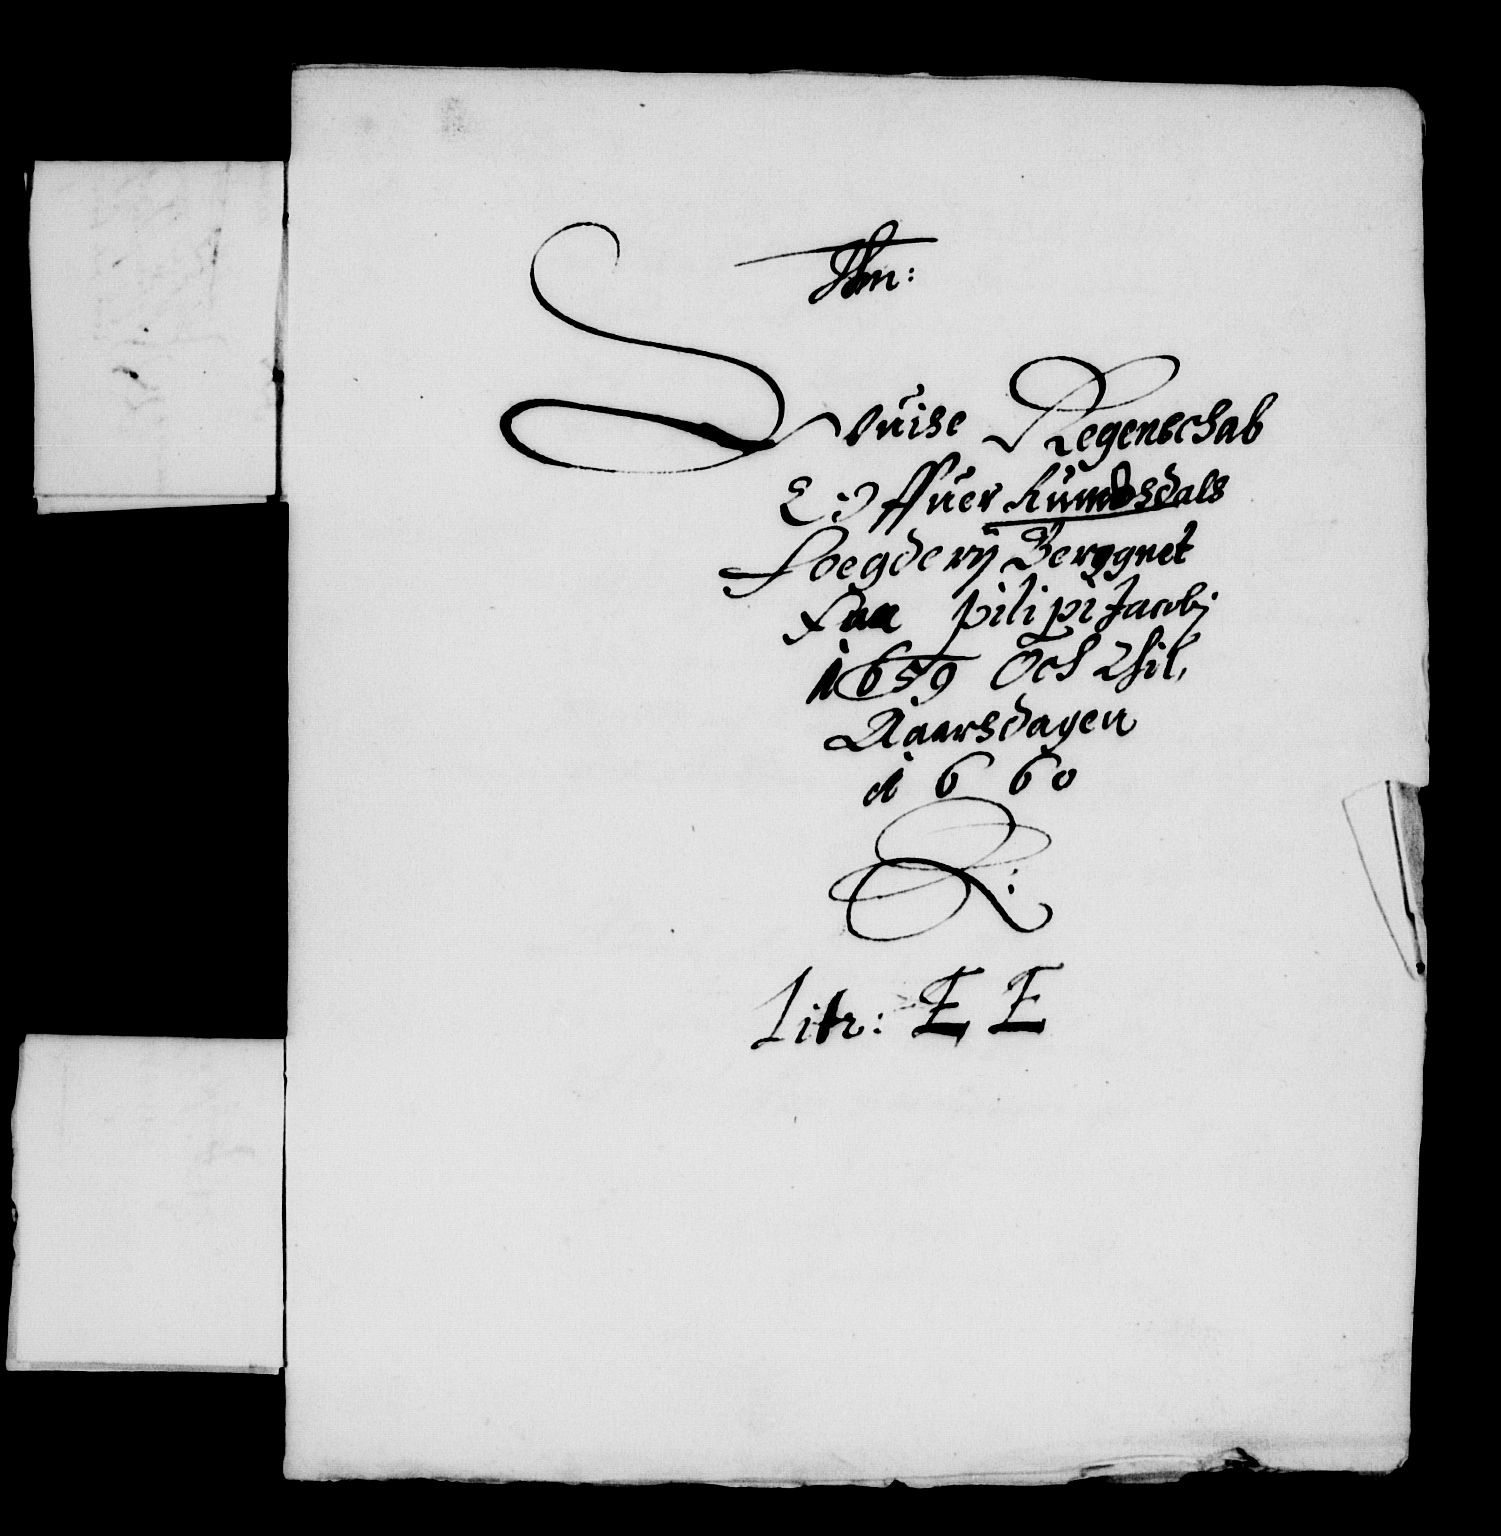 Svuise Regenschab
Offuer Rumbsdals
Foegderij Beregnet
Fraa pilipi Jacobi
1659 Och Thil,
Aaarsdagen
1660
Litr: E E